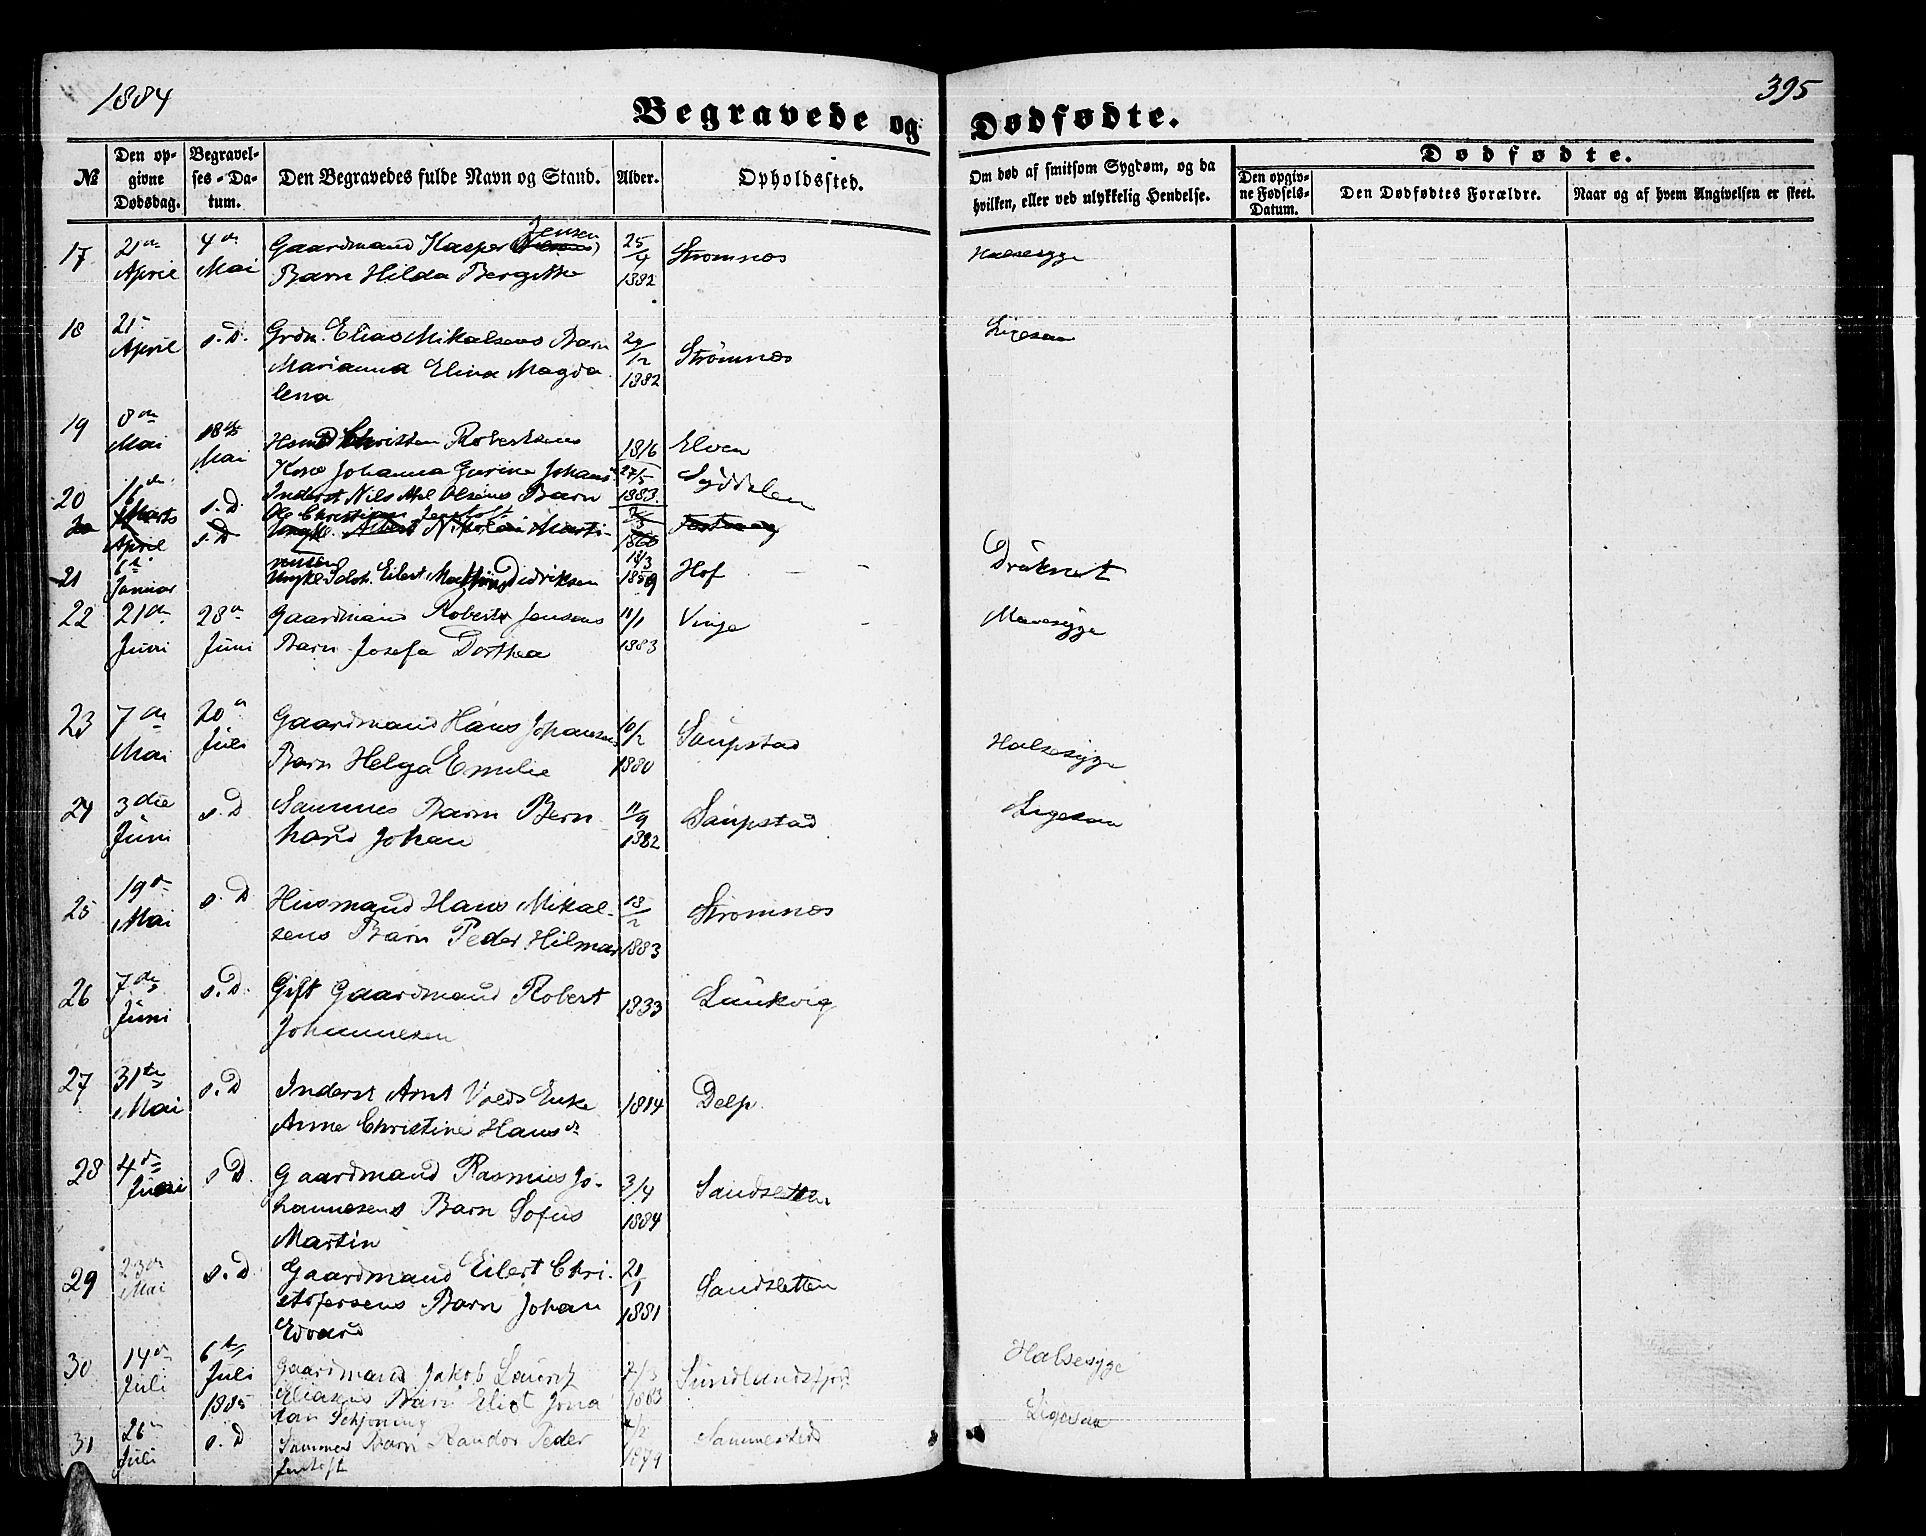 1884
395
Begravede og Dødfødte.
№
Den opgivne Dødsdag.
Begravelses-Datum.
Den Begravedes fulde Navn og Stand.
Alder.
Opholdssted.
Om død af smitsom Sygdom, og da hvilken, eller ved ulykkelig Hendelse.
Dødfødte.
Den opgivne Fødsels-Datum.
Den Dødfødtes Forældre.
Naar og af hvem Angivelsen er skeet.
17 21de April 4de Mai Gaardmand Kasper Jensen 25/4 1882 Strømnes Halsesyge
Barn Hilda Bergitte
18 21 April s.D. Grdm. Elias Mikalsens Barn 1882 Strømnæs Ligesaa
Marianna Elina Magda
lena
19 8de Mai 18de Mai Christen Robertsens 1816 Elven
Kone Johanna Gurine Johans
20 16de Marts s.D. Inderst Nils Olsens Barn 27/5 1883 Syddalen
Ole Christian
April s.D. Ungkl. Albert Nikolai Marti-
nussen 1860
21 6te Januar Ungkl. Eilert Didriksen 18/3 1859 Hof Druknet
22 21de Juni 28de Juni Gaardmand Robert Jensens 11/1 1883 Vinje Mavesyge
Barn Josefa Dorthea
23 7de Mai 20de Juli Gaardmand Hans Johansens 10/2 1880 Saupstad Halsesyge
Barn Helga Emilie
24 3die Juni s.D Sammes Barn Bern 11/9 1882 Saupstad Ligesaa
hard Johan
25 19de Mai s.D Husmand Hans Mikal- 18/2 1883 Strømnæs
sens Barn Peder Hilmar
26 7de Juni s.D. Gift Gaardmand Robert 1833 Laukvig
Johannesen
27 31te Mai s.D Inderst Arnt Volds Enke 1814 Delp
Anne Christine Hansd
28 4de Juni s.D. Gaardmand Rasmus Jo- 3/4 1884 Sandsletten
hannesens Barn Sofus
Martin
29 23de Mai s.D. Gaardmand Eilert Chri- 21/1 1881 Sandsletten
stofersens Barn Johan
Edvard
30 14de Juli 6te Juli 1885 Gaardmand Jakob Lauritz 1883 Sundlandsfjord Halsesyge
Eliasens Barn Eliot Jona
tan Schjöning
31 26de Juli s.D Sammes Barn Randor Peder 1879 Sammesteds Ligesaa
Jentoft